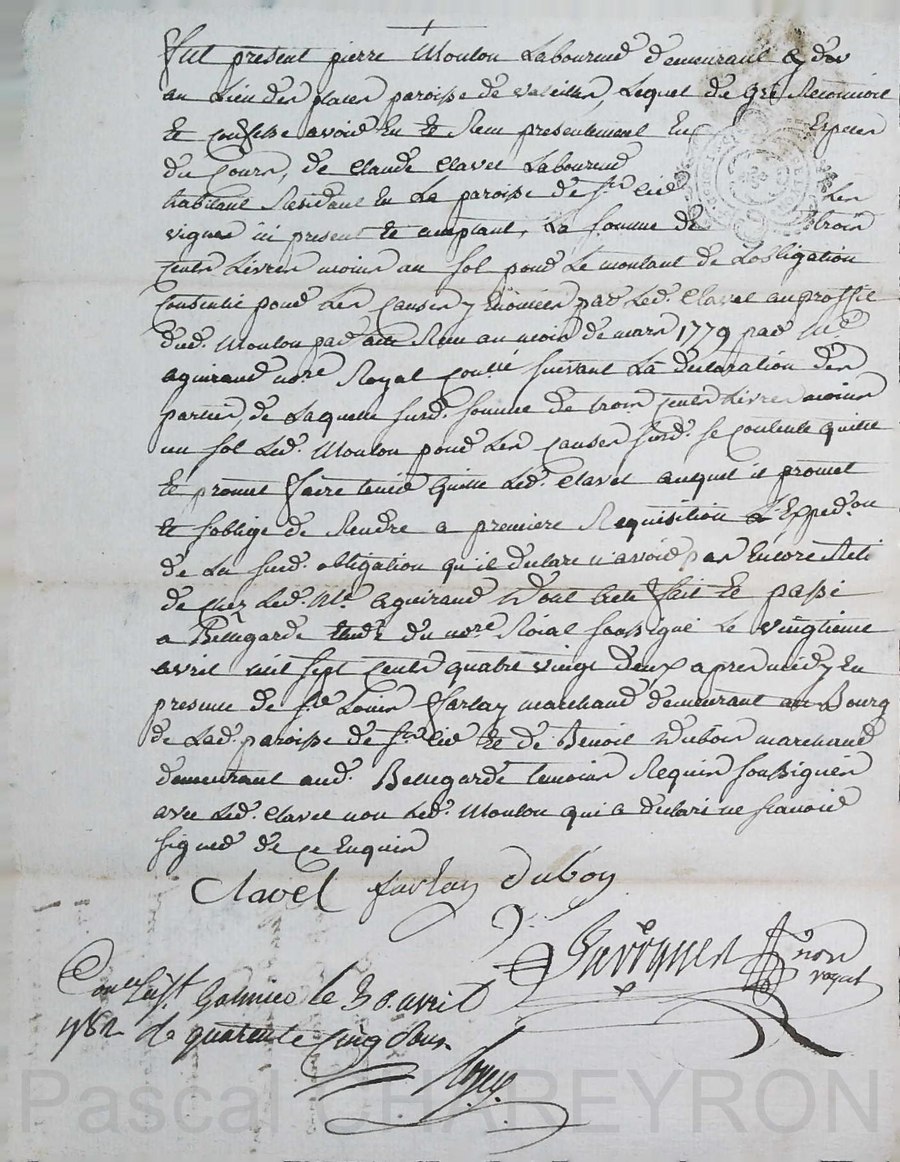 Fut present pierre Moulon Laboureur demeurant
au Lieu des places paroisse de veleilles, Lequel de Gré Reconnoit
Et confesse avoir Eu Et Reçu presentement En Especes
du Cours, de Claude Clavel Laboureur
habitant Residant En La paroisse de St Cir Les
vignes ici present Et acceptant, La somme de trois
Cents Livres moins un sol pour Le montant de Lobligation
Consentie pour Les Causes y Enoncées par Led. Clavel au proffit
dud. Moulon par acte Reçu au mois de mars 1779 par Me
aguiraud nore Royal suivant La declaration des
parties, de Laquelle susd. somme de trois Cents Livres moins
un sol Led. Moulon pour Les Causes susd. se contente quitte
Et promet faire tenir quitte Led. Clavel auquel il promet
Et soblige de Rendre a premiere Requisition Expedon
de La susd. obligation qu'il declare n'avoir pas Encore Reti
de chez Led. Me aguiraud Dont acte fait Et passé
a Bellegarde Etude du nore Roial soussigné Le vingtieme
avril mil sept Cents quatre vingt deux apres midy En
presence de sr Louis farlay marchand demeurant au Bourg
de Lad. paroisse de St Cir Et de Benoit Dubois marchand
demeurant aud. Bellegarde temoins Requis soussignés
avec Led. Clavel non Led. Moulon qui a declaré ne scavoir
signer de ce Enquis
Clavel farlay duboy
nore
royal
Conlé a St Galmier le 30 avril
1782 de quarente cinq sous
Pascal CHAREYRON